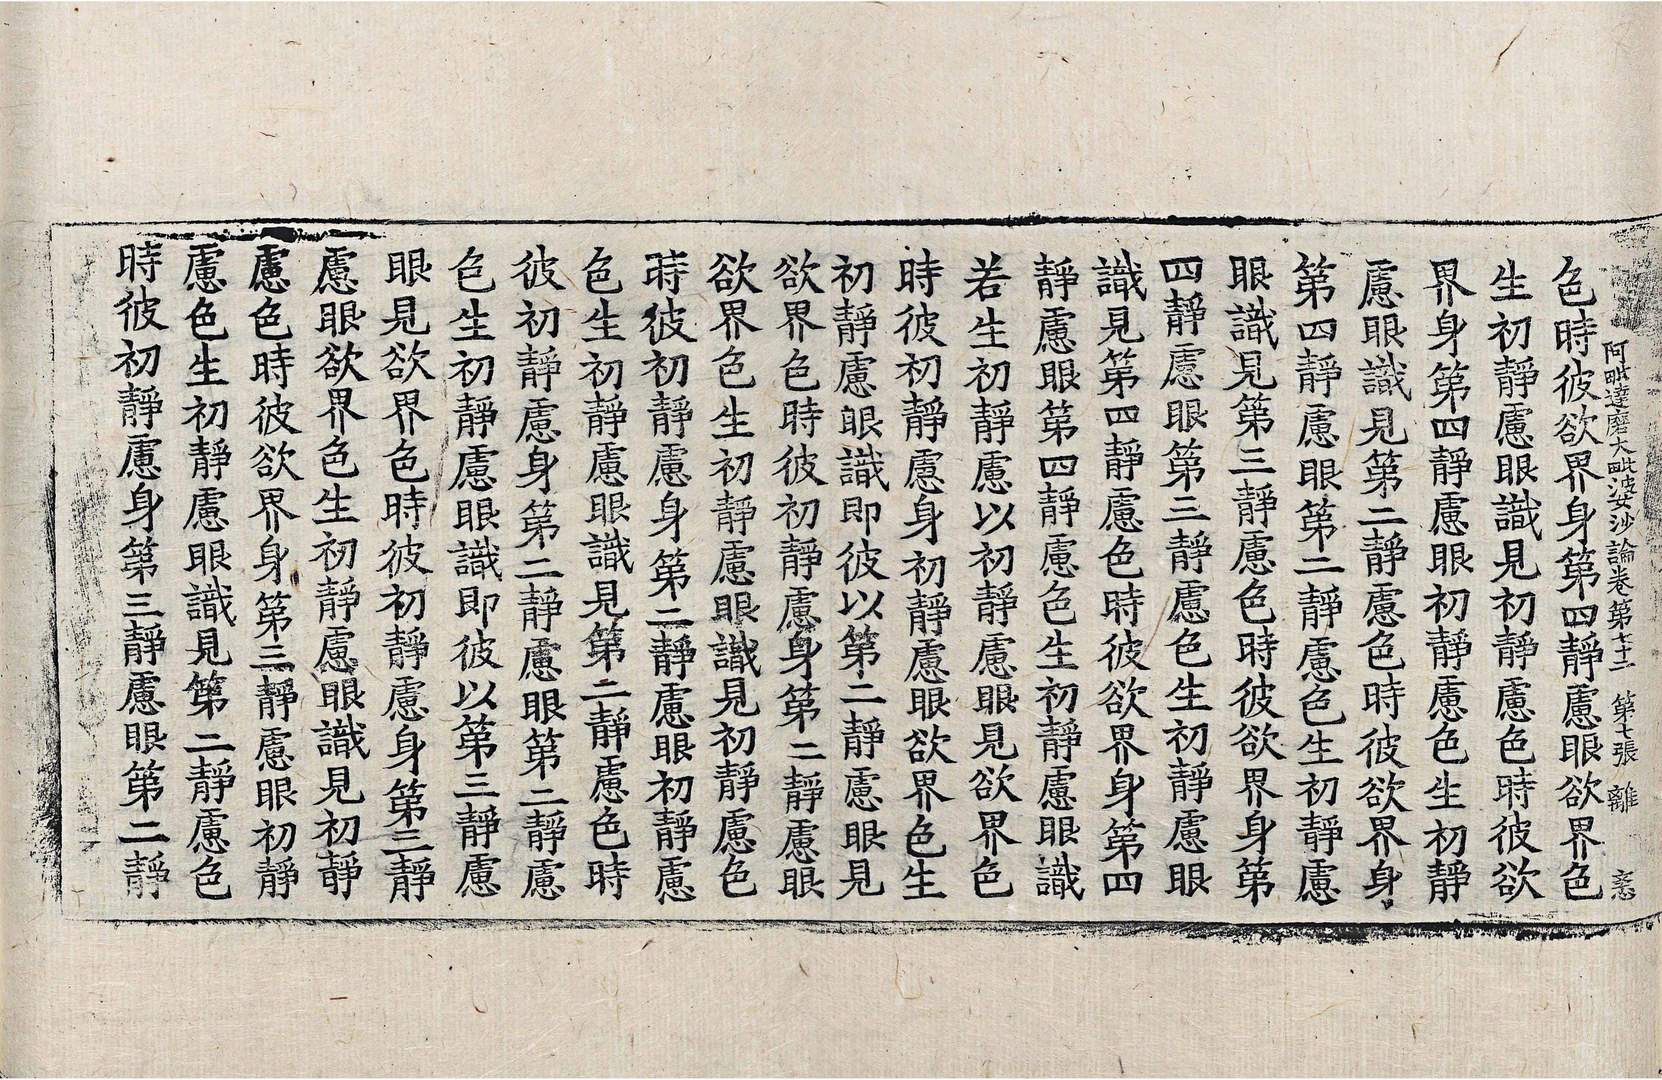 阿毗達磨大毗婆沙論卷第七十二 第七張 離
色時彼欲界身第四靜慮眼欲界色
生初靜慮眼識見初靜慮色時彼欲
界身第四靜慮眼初靜慮色生初靜
慮眼識見第二靜慮色時彼欲界身
第四靜慮眼第二靜慮色生初靜慮
眼識見第三靜慮色時彼欲界身第
四靜慮眼第三靜慮色生初靜慮眼
識見第四靜慮色時彼欲界身第四
靜慮眼第四靜慮色生初靜慮眼識
若生初靜慮以初靜慮眼見欲界色
時彼初靜慮身初靜慮眼欲界色生
初靜慮眼識即彼以第二靜慮眼見
欲界色時彼初靜慮身第二靜慮眼
欲界色生初靜慮眼識見初靜慮色
時彼初靜慮身第二靜慮眼初靜慮
色生初靜慮眼識見第二靜慮色時
彼初靜慮身第二靜慮眼第二靜慮
色生初靜慮眼識即彼以第三靜慮
眼見欲界色時彼初靜慮身第三靜
慮眼欲界色生初靜慮眼識見初靜
慮色時彼欲界身第三靜慮眼初靜
慮色生初靜慮眼識見第二靜慮色
時彼初靜慮身第三靜慮眼第二靜